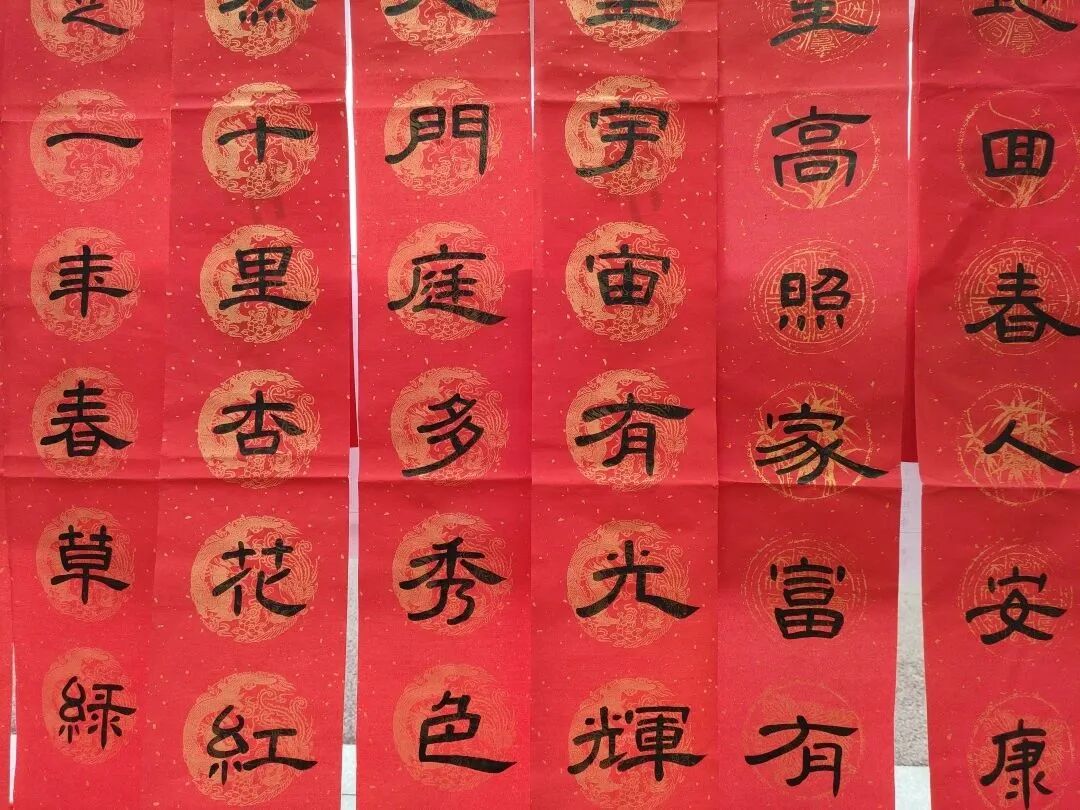 地回春人安康
星高照家富有
宇宙有光輝
門庭多秀色
十里杏花紅
一年春草綠